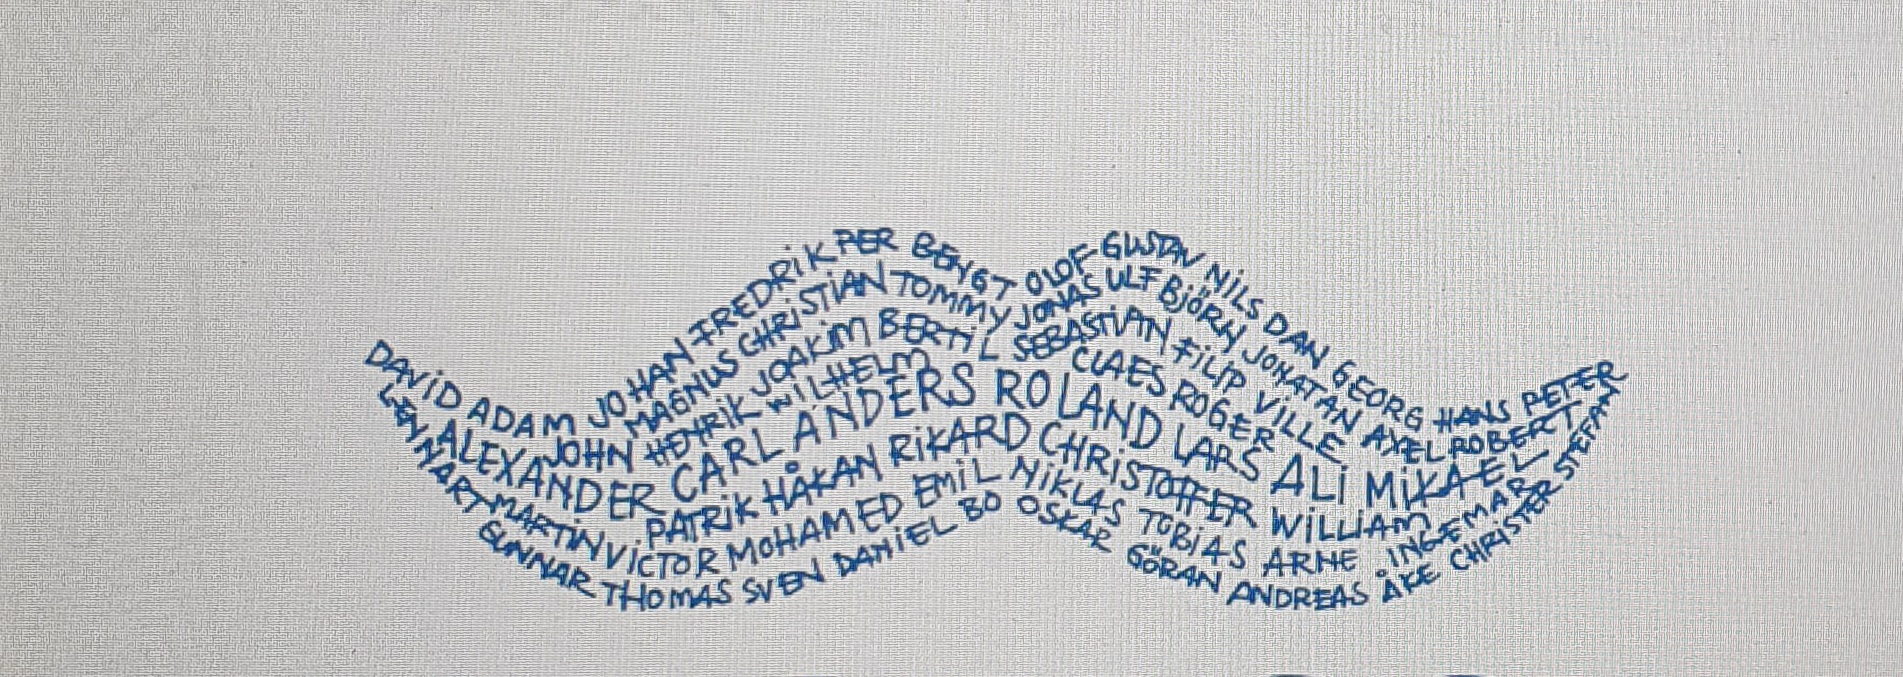 DAVID ADAM JOHAN FREDRIK PER BENGT OLOF GUSTAV NILS DAN GEORG HANS PETER
MAGNUS CHRISTIAN TOMMY JONAS ULF BJÖRN JONATAN AXEL ROBERT
JOHN HENRIK JOAKIM BERTIL SEBASTIAN FILIP VILLE
WILHELM CLAES ROGER
ALEXANDER CARL ANDERS ROLAND LARS ALI MIKAEL
LENNART MARTIN VICTOR PATRIK HÅKAN RIKARD CHRISTOFFER WILLIAM
MOHAMED EMIL NIKLAS TOBIAS ARNE INGEMAR STEFAN
GUNNAR THOMAS SVEN DANIEL BO OSKAR GÖRAN ANDREAS ÅKE CHRISTER